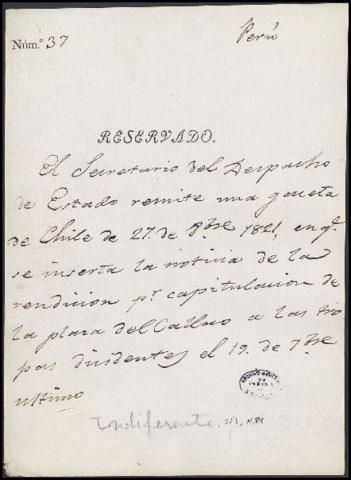 Perú
Núm.º 37
RESERVADO.
El Secretario del Despacho
de Estado remite una gaceta
de Chile de 27. de 8bre 1821, en q.e
se inserta la noticia de la
rendicion pr capitulacion de
la plaza del Callao a las tro
pas disidentes el 19. de 7bre
ultimo
Indiferente, 313, N.84